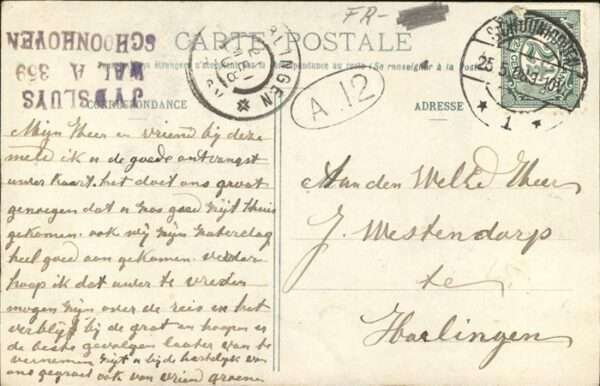 FR-
CARTE POSTALE
Tous les pays étrangers n'acceptent pas la Correspondance au recto / Se renseigner à la Poste
SCHOONHOVEN
WAL A 359
JYDSLUYS
HARLINGEN
SCHOONHOVEN
25.5
1
A 12
CORRESPONDANCE
ADRESSE
Mijn Heer en vriend bij deze
meld ik u de goede ontvangst
uwer kaart. het doet ons groot
genoegen dat u nog goed zijt thuis
gekomen. ook wij zijn zaterdag
heel goed aan gekomen. verder
hoop ik dat uwer te vreden
mogen zijn over de reis en het
verblijf bij de groot en hoopen er
de beste gevolgen laater van te
vernemen zijt u bij de hartelijk van
ons gegroet ook van vriend
Aan den Weled Heer
J. Westendorp
te
Harlingen